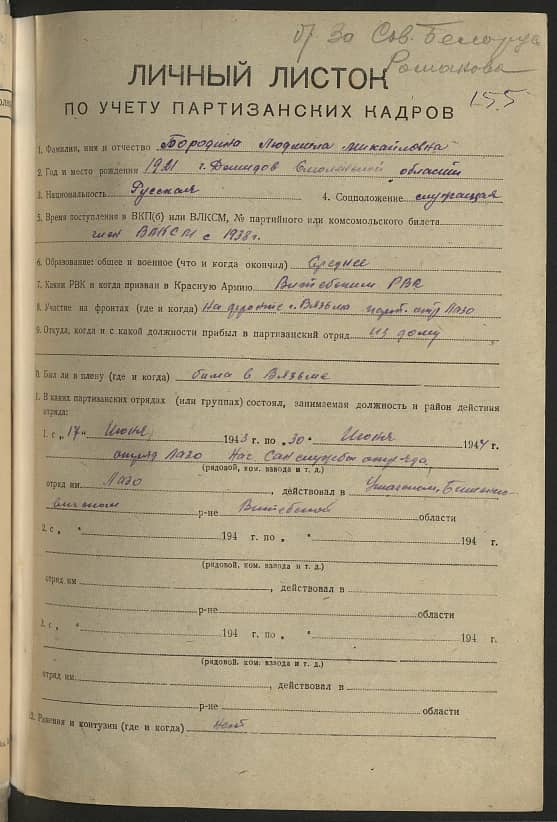 бр За Сов. Беларусь
Романова
155
ЛИЧНЫЙ ЛИСТОК
ПО УЧЕТУ ПАРТИЗАНСКИХ КАДРОВ
1. Фамилия, имя и отчество Бородина Людмила Михайловна
2. Год и место рождения 1921 г. Демидов Смоленской области
3. Национальность Русская 4. Соцположение служащая
5. Время поступления в ВКП(б) или ВЛКСМ, № партийного или комсомольского билета
член ВЛКСМ с 1938 г.
6. Образование: общее и военное (что и когда окончил) Среднее
7. Каким РВК и когда призван в Красную Армию Витебским РВК
8. Участие на фронтах (где и когда) На фронте г. Вязьма парт. отр Лазо
9. Откуда, когда и с какой должности прибыл в партизанский отряд из дому
0. Был ли в плену (где и когда) была в Вязьме
1. В каких партизанских отрядах (или группах) состоял, занимаемая должность и район действия
отряда:
1. с „17" Июня 1943 г. по „30" Июня 1944 г.
отряд Лазо Нач. Сан службы отряда
(рядовой, ком. взвода и т. д.)
отряд им Лазо, действовал в Ушачском, Бешенко-
вичском р-не Витебской области
2. с „ " 194 г. по „ " 194 г.
(рядовой, ком. взвода и т. д.)
отряд им , действовал в
р-не области
3. с „ " 194 г. по „ " 194 г.
(рядовой, ком. взвода и т. д.)
отряд им. , действовал в
р-не области
2. Ранения и контузии (где и когда) нет